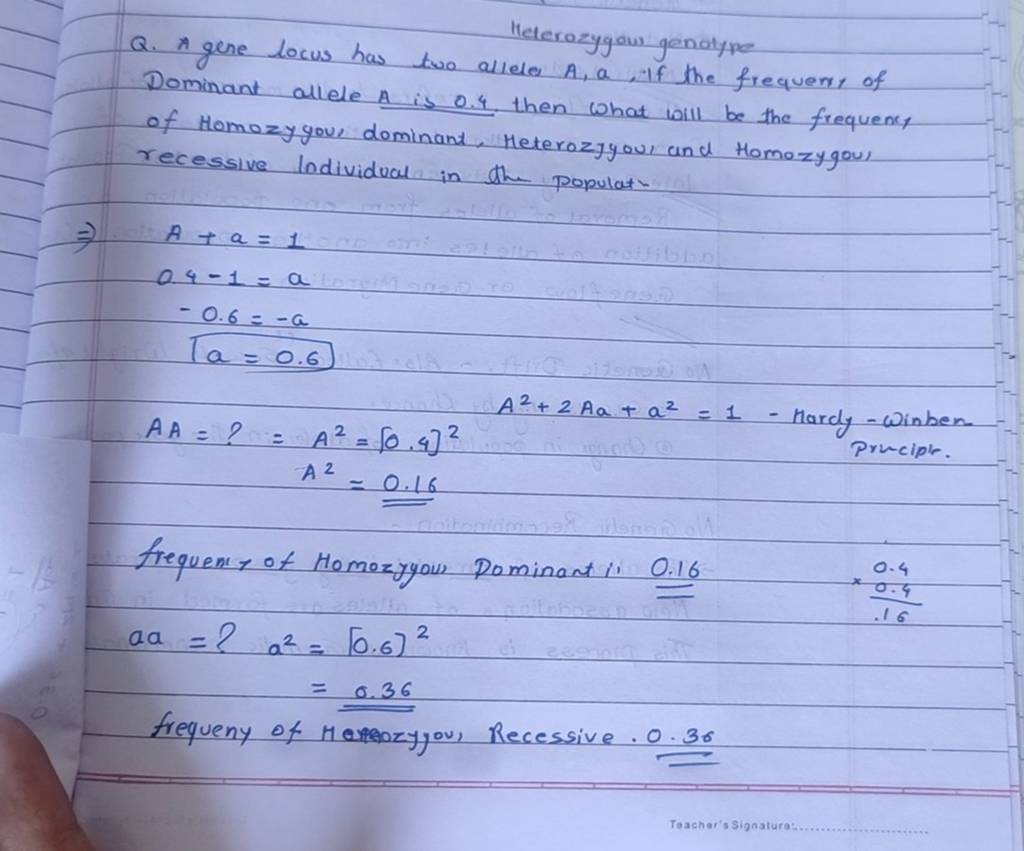 Heterozygous genotype
Q. A gene locus has two alleles A, a. If the frequency of
Dominant allele A is 0.4, then what will be the frequency
of Homozygous dominant, Heterozygous and Homozygous
recessive Individual in the populat~
⇒ A + a = 1
0.4 - 1 = a
- 0.6 = -a
a = 0.6
A² + 2 Aa + a² = 1 - Hardy - Winben
Prncipr.
AA = ? = A² = [0.4]²
A² = 0.16
frequency of Homozygous Dominant is 0.16
0.4
× 0.4
.16
aa = ? a² = [0.6]²
= 0.36
frequeny of Recessive . 0.36
Teacher's Signature: